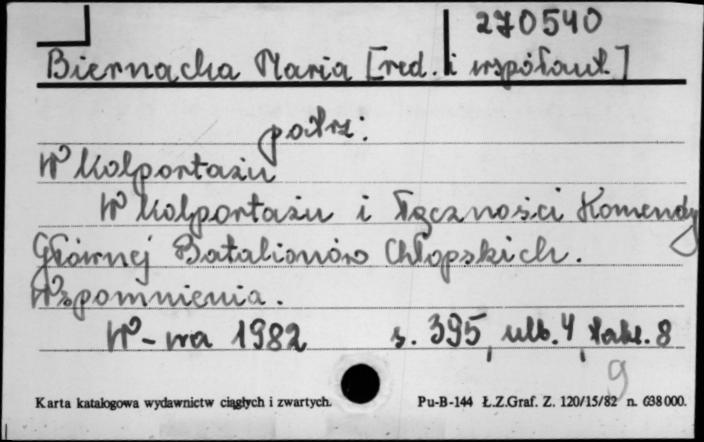 270540
Biernacka Maria [red. i współaut.]
patrz:
W kolportażu
W kolportażu i łączności Komendy
Głównej Batalionów Chłopskich.
Wspomnienia.
W-wa 1982 s. 395, nlb. 4, tabl. 8
9
Karta katalogowa wydawnictw ciągłych i zwartych. Pu-B-144 Ł.Z.Graf. Z. 120/15/82 n. 638000.